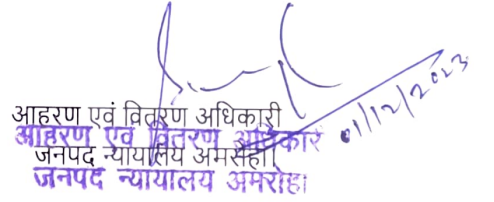 01/12/2023
आहरण एवं वितरण अधिकारी
आहरण एवं वितरण अधिकारी
जनपद न्यायालय अमरोहा।
जनपद न्यायालय अमरोहा